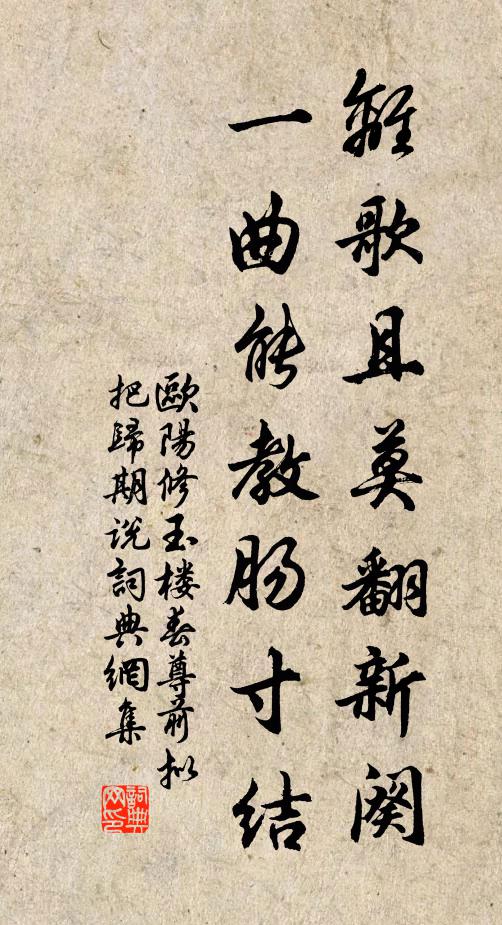 離歌且莫翻新闋
一曲能教肠寸结
歐陽修玉楼春尊前拟
把歸期说詞典網集
詞典网印